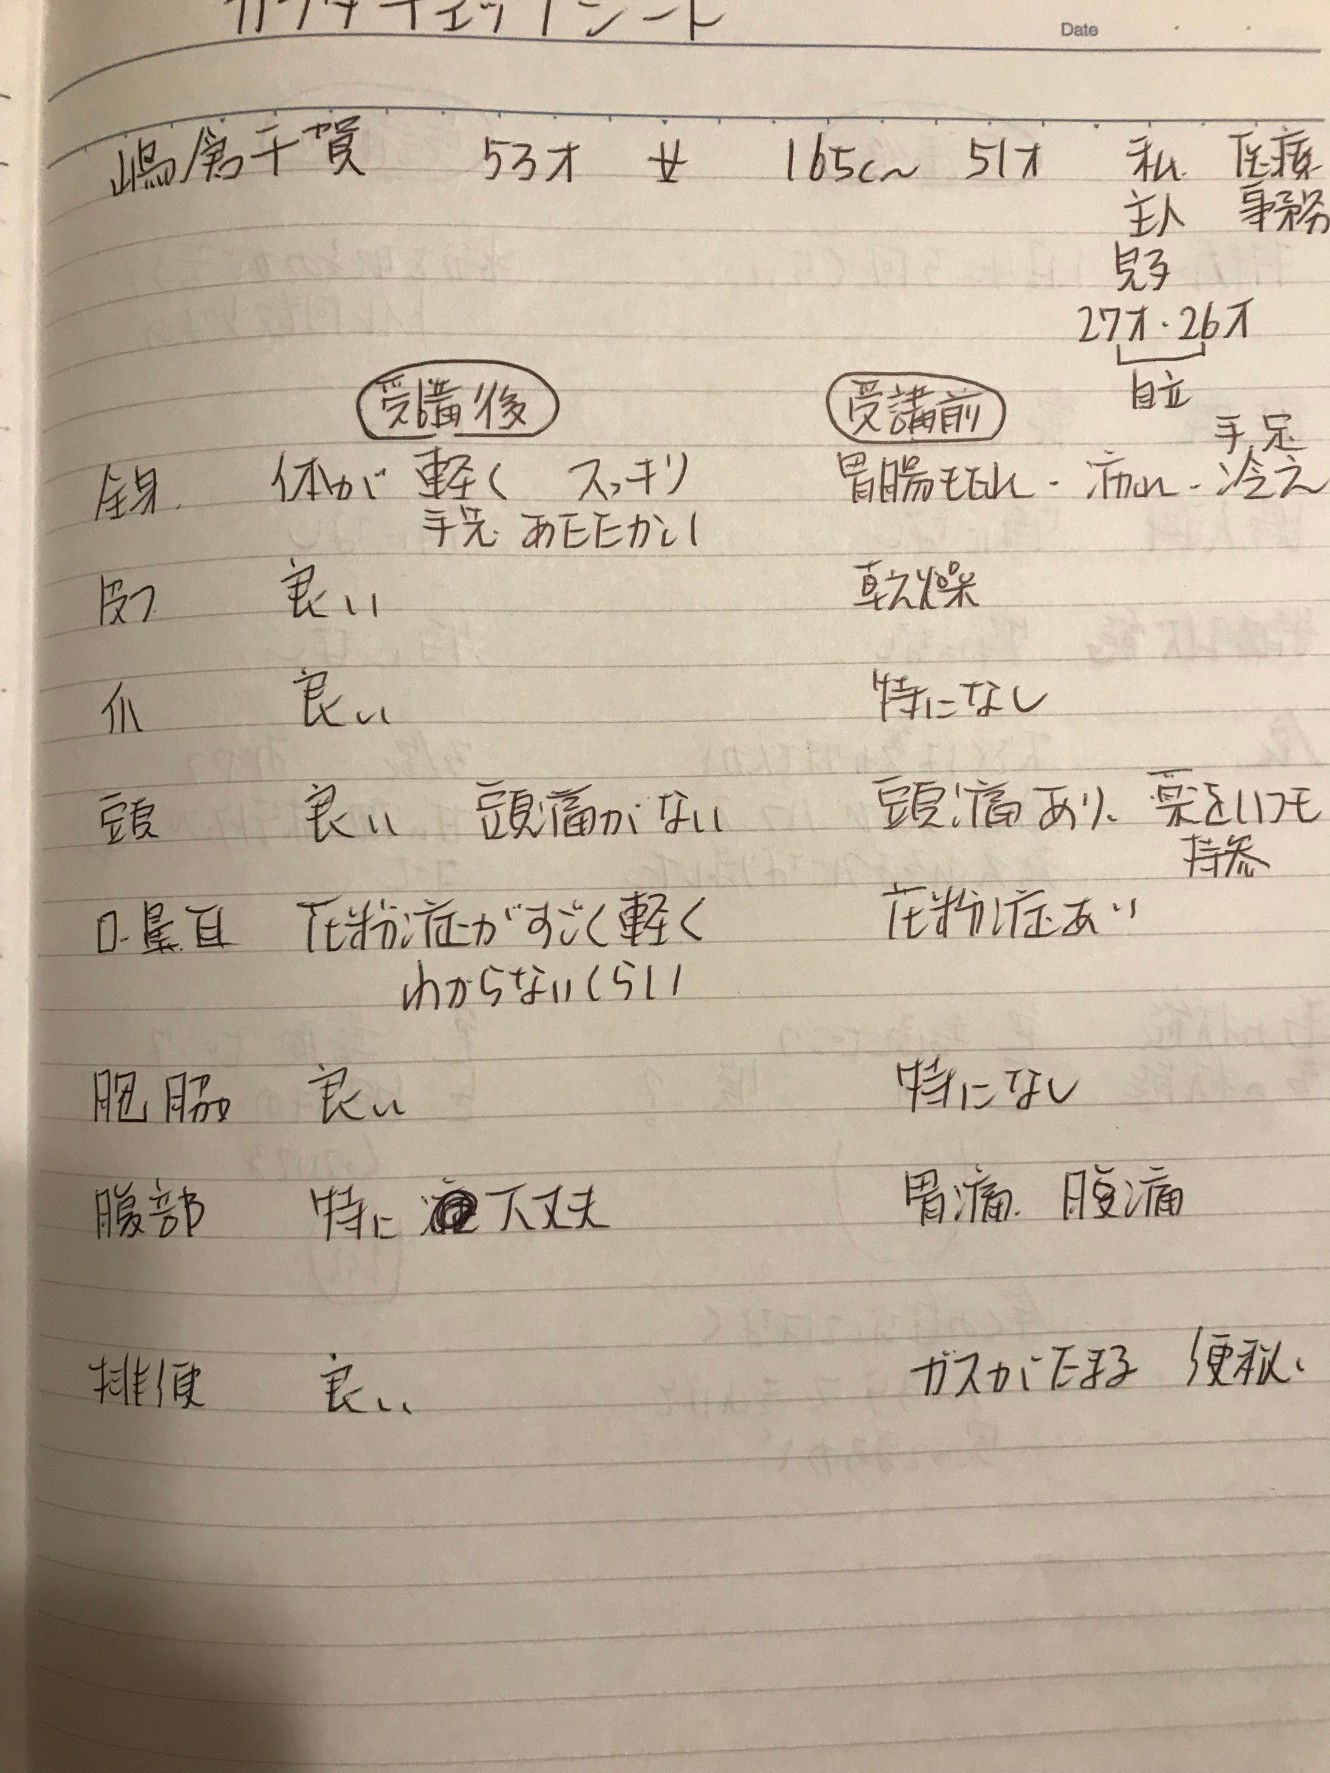 カラダチェックシート
Date
嶋倉千賀 53才 女 165cm 51才 私 医療
主人 事務
男子
27才・26才
自立
受講後 受講前
手足
全身 体が軽く スッキリ 胃腸もたれ・疲れ・冷え
手先 あたたかい
皮フ 良い 乾燥
爪 良い 特になし
頭 良い 頭痛がない 頭痛あり、薬をいつも
持参
口・鼻・耳 花粉症がすごく軽く 花粉症あり
わからないくらい
胸 脇 良い 特になし
腹部 特に 大丈夫 胃痛、腹痛
排便 良い ガスがたまる 便秘